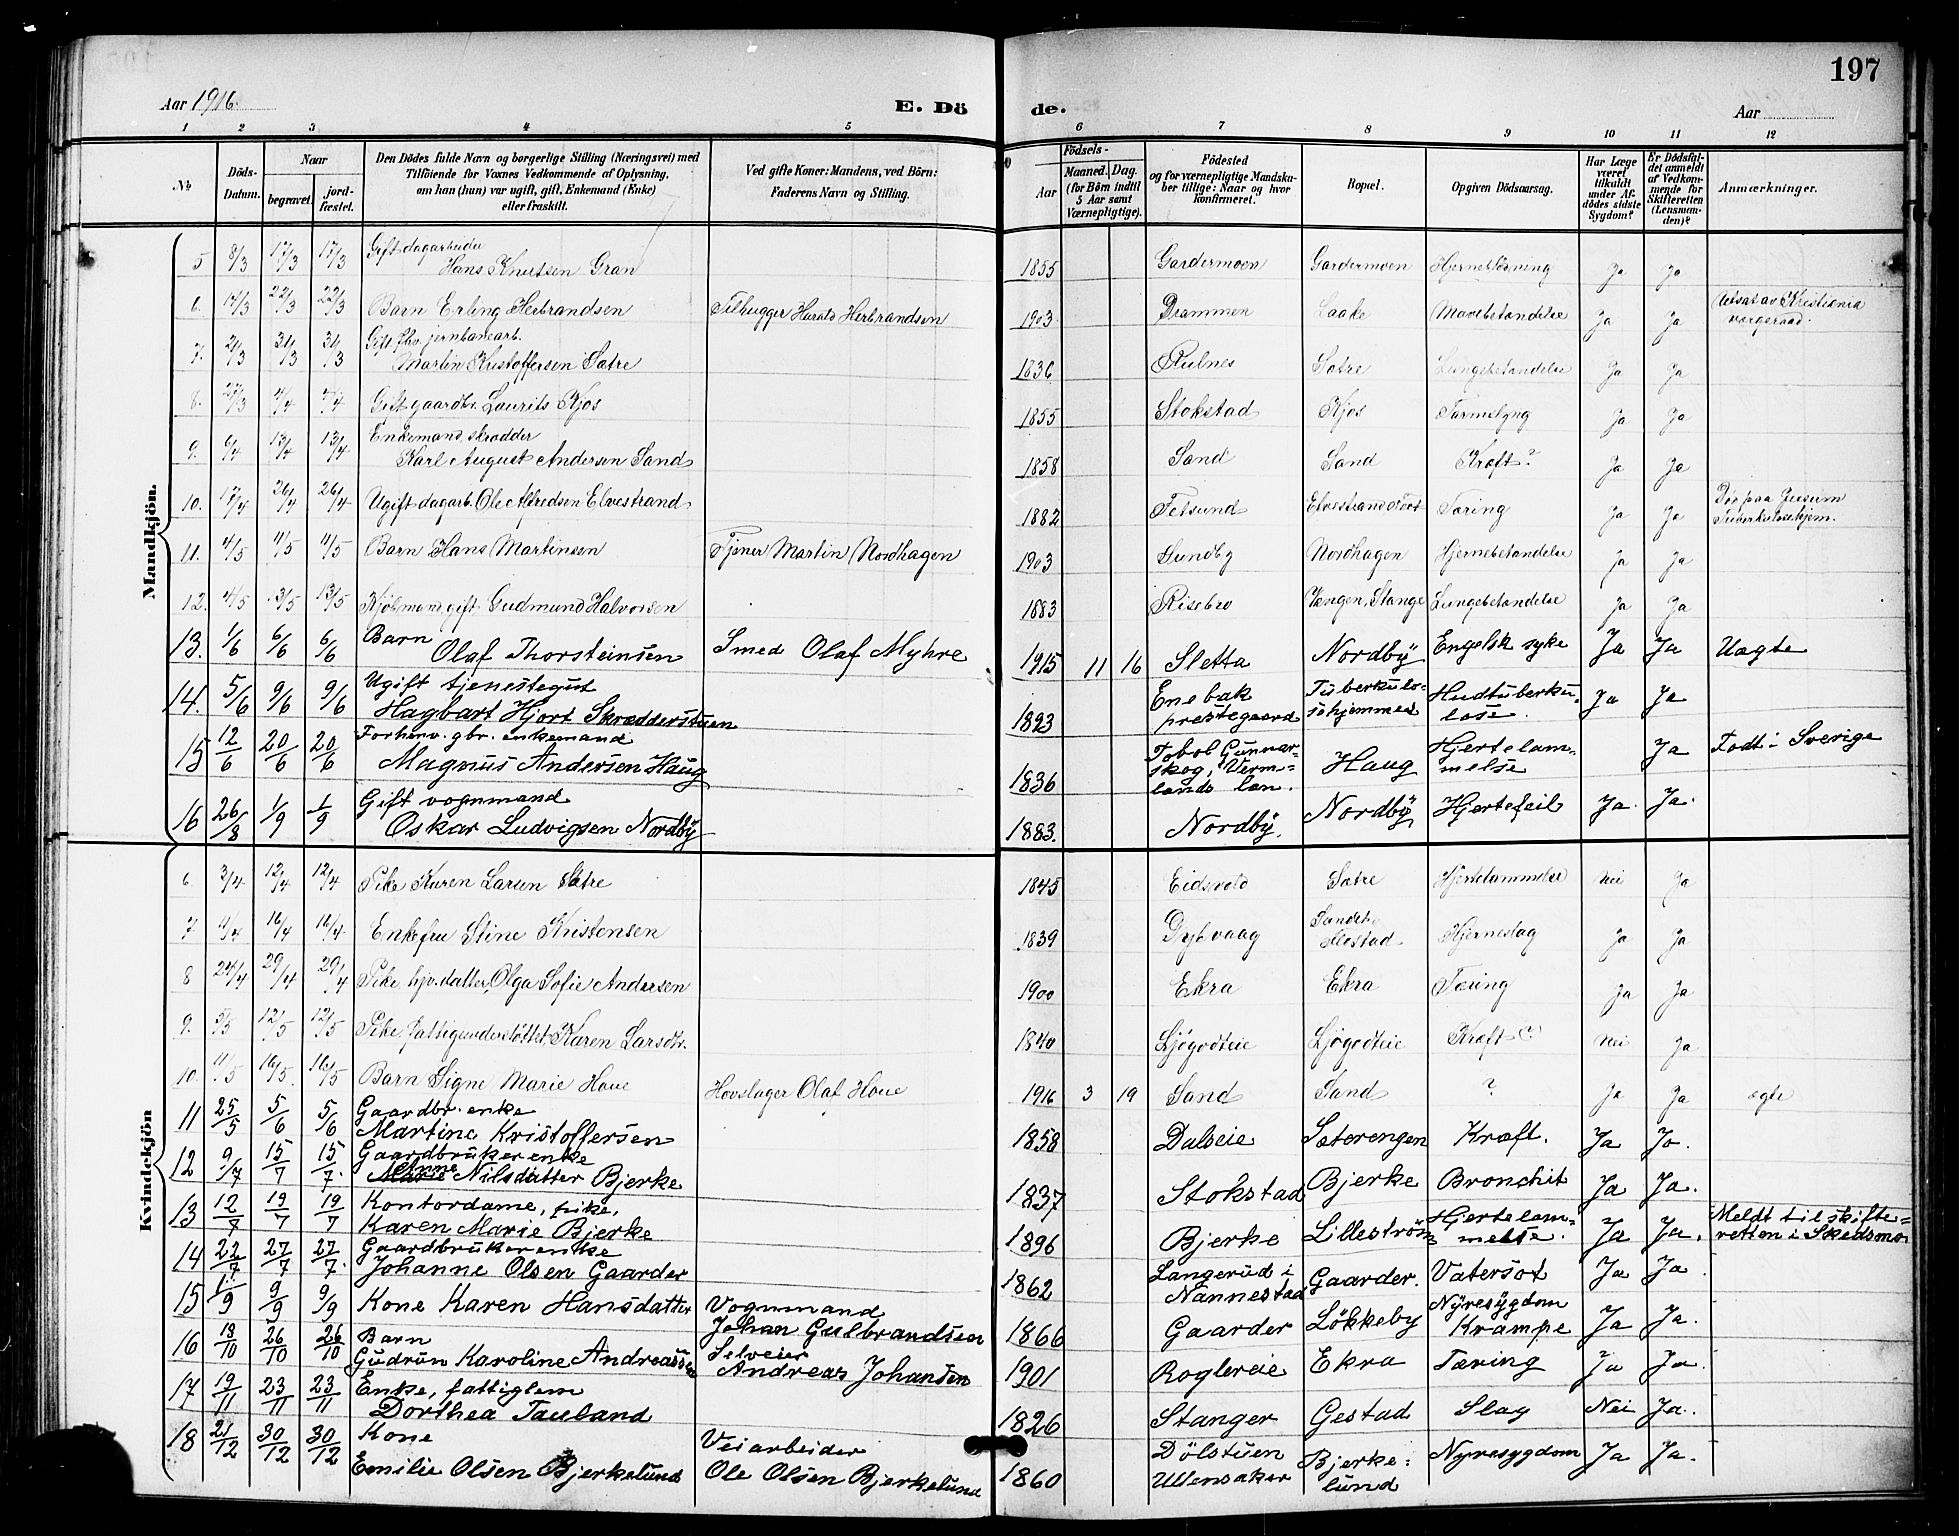 197
Aar 1916.
E. Dö
de.
Aar
1 2 3 4 5
6 7 8 9 10 11 12
№
Döds-
Datum.
Naar
begravet.
jord-
fæstet.
Den Dödes fulde Navn og borgerlige Stilling (Næringsvei) med
Tilföiende for Voxnes Vedkommende af Oplysning,
om han (hun) var ugift, gift, Enkemand (Enke)
eller fraskilt.
Ved gifte Koner: Mandens, ved Börn:
Faderens Navn og Stilling.
Födsels-
Aar
Maaned. Dag.
(for Börn indtil
5 Aar samt
Værnepligtige).
Födested
og for værnepligtige Mandska-
ber tillige: Naar og hvor
konfirmeret.
Bopæl.
Opgiven Dödsaarsag.
Har Læge
været
tilkaldt
under Af-
dödes sidste
Sygdom?
Er Dödsfal-
det anmeldt
af Vedkom-
mende for
Skifteretten
(Lensman-
den)?
Anmærkninger.
Mandkjön.
Gift dagarbeider
5 8/3 17/3 17/3 Hans Knutsen Gran 1855 Gardermoen Gardermoen Hjerneblødning Ja Ja
6. 14/3 22/3 22/3 Barn Erling Herbrandsen Tilhugger Harald Herbrandsen 1903 Drammen Laake Mavebetændelse Ja Ja Utsat av Kristiania
vergeraad.
Gift fhv. jernbanearb.
7. 21/3 31/3 31/3 Martin Kristoffersen Sætre 1836 Rulnes Sætre Lungebetændelse Ja Ja
8. 27/3 4/4 4/4 Gift gaardbr. Laurits Kjos 1855 Stokstad Kjos Tarmslyng Ja Ja
Enkemand, skrædder
9. 6/4 13/4 13/4 Karl August Andersen Sand 1858 Sand Sand Kræft? Ja Ja
10. 17/4 26/4 26/4 Ugift dagarb. Ole Alfredsen Elvestrand 1882 Fetsund Elvestrand Tæring Ja Ja Død paa Jessum
Tuberkulosehjem.
11. 4/5 11/5 11/5 Barn Hans Martinsen Tjener Martin Nordhagen 1903 Sundby Nordhagen Hjernebetændelse Ja Ja
12. 4/5 13/5 13/5 Kjøbmand gift Gudmund Halvorsen 1883 Risebro Vængen, Stange Lungebetændelse Ja Ja
Barn
13. 1/6 6/6 6/6 Olaf Thorsteinsen Smed Olaf Myhre 1915 11 16 Sletta Nordbÿ Engelsk syke Ja Ja Uægte
Ugift tjenestegut
14. 5/6 9/6 9/6 Hagbart Hjort Skrædderstuen 1893 Enebak
prestegaard Tuberkulo-
sehjemmet Hudtuberku-
lose. Ja Ja
Forhenv. gbr. enkemand
15 12/6 20/6 20/6 Magnus Andersen Haug 1836 Tobol Gunnar-
skog, Verm-
lands län. Haug Hjertelam-
melse Ja Født i Sverige
Gift vognmand
16 26/8 1/9 1/9 Oskar Ludvigsen Nordbÿ 1883. Nordbÿ. Nordbÿ Hjertefeil Ja. Ja.
Kvindekjön
6 3/4 12/4 12/4 Pike Karen Larsen Sætre 1845 Eidsvold Sætre Hjertelammelse Nei Ja
7 11/4 16/4 16/4 Enkefru Stine Kristensen 1839 Dybvaag Hjerneslag Ja Ja
8 24/4 29/4 29/4 Pike hjv. datter, Olga Sofie Andersen 1900 Ekra Ekra Tæring Ja Ja
9. 5/5 12/5 12/5 Pike, fattigunderstøttet Karen Larsdtr. 1840 Ljøgodteie Ljøgodteie Kræft (?) Nei Ja
10. 11/5 16/5 16/5 Barn Signe Marie Houe Hovslager Olaf Houe 1916 3 19 Sand Sand ? Ja Ja ægte
Gaardbr. enke
11 25/5 5/6 5/6 Martine Kristoffersen 1858 Dalseie Sæterengen Kræft. Ja Ja.
Gaardbrukerenke
12 9/7 15/7 15/7. Anne Nilsdatter Bjerke 1837 Stokstad Bjerke Bronchit Ja Ja.
Kontordame, pike,
13 12/7 19/7 19/7 Karen Marie Bjerke 1896 Bjerke Lilleström Hjertelam-
melse. Ja Ja. Meldt til skifte-
retten i Skedsmo
Gaardbrukerenke
14 22/7 27/7 27/7. Johanne Olsen Gaarder 1862 Langerud i
Nannestad Gaarder. Vatersot Ja Ja.
15 1/9 9/9 9/9 Kone Karen Hansdatter Vognmand
Johan Gulbrandsen 1866 Gaarder Lökkeby Nÿresÿgdom
Krampe Ja Ja.
Barn
16 18/10 26/10 26/10 Gudrun Karoline Andreassen Selveier
Andreas Johansen 1901 Roglereie Ekra Tæring Ja Ja.
Enke, fattiglem
17 19/11 23/11 23/11 Dorthea Tauland 1826 Stanger Gestad Slag Nei Ja.
Kone
18 21/12 30/12 30/12 Emilie Olsen Bjerkelund Veiarbeider
Ole Olsen Bjerkelund 1860 Dölstuen
Ullensaker Bjerke-
lund Nyresygdom Ja Ja.